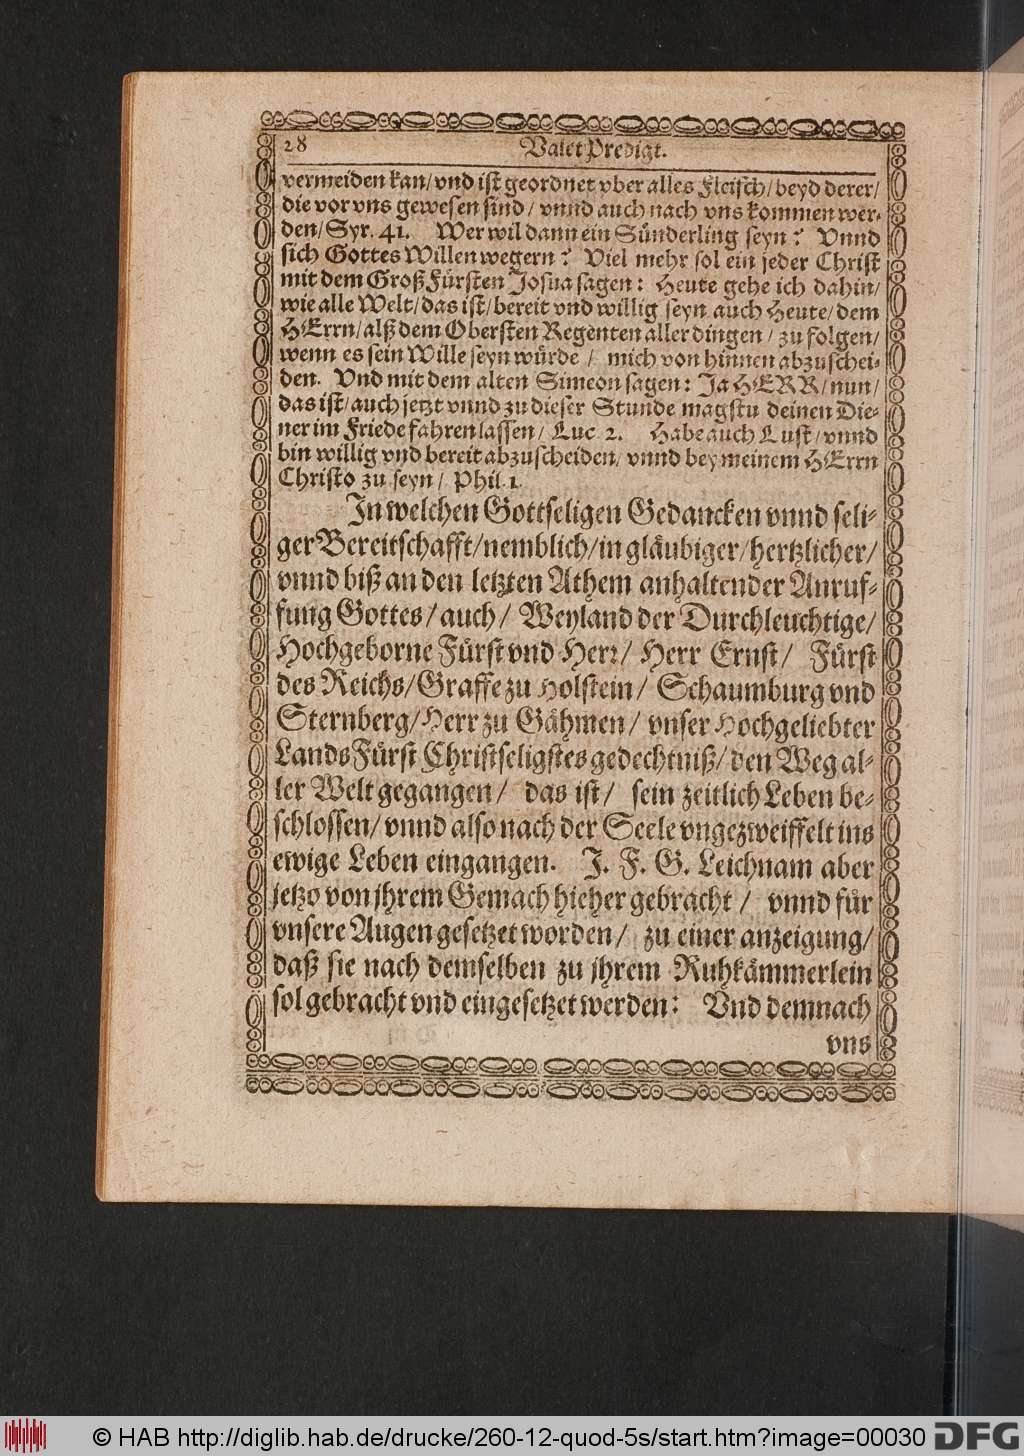 28 Valet Predigt.
vermeiden kan/ vnd ist geordnet vber alles Fleisch/ beyd derer/
die vor vns gewesen sind/ vnnd auch nach vns kommen wer-
den/ Syr. 41. Wer wil dann ein Sünderling seyn? Vnnd
sich Gottes Willen wegern? Viel mehr sol ein jeder Christ
mit dem Groß Fürsten Josua sagen: Heute gehe ich dahin/
wie alle Welt/ das ist/ bereit vnd willig seyn auch Heute/ dem
HErrn/ alß dem Obersten Regenten aller dingen/ zu folgen/
wenn es sein Wille seyn würde/ mich von hinnen abzuschei-
den. Vnd mit dem alten Simeon sagen: Ja HERR/ nun/
das ist/ auch jetzt vnnd zu dieser Stunde magstu deinen Die-
ner im Friede fahren lassen/ Luc. 2. Habe auch Lust/ vnnd
bin willig vnd bereit abzuscheiden/ vnnd bey meinem HErrn
Christo zu seyn/ Phil. 1.
In welchen Gottseligen Gedancken vnnd seli-
ger Bereitschafft/ nemblich/ in gläubiger/ hertzlicher/
vnnd biß an den letzten Athem anhaltender Anruf-
fung Gottes/ auch/ Weyland der Durchleuchtige/
Hochgeborne Fürst vnd Herr/ Herr Ernst/ Fürst
des Reichs/ Graffe zu Holstein/ Schaumburg vnd
Sternberg/ Herr zu Gähmen/ vnser Hochgeliebter
LandsFürst Christseligstes gedechtniß/ den Weg al-
ler Welt gegangen/ das ist/ sein zeitlich Leben be-
schlossen/ vnnd also nach der Seele vngezweiffelt ins
ewige Leben eingangen. J. F. G. Leichnam aber
jetzo von jhrem Gemach hieher gebracht/ vnnd für
vnsere Augen gesetzet worden/ zu einer anzeigung/
daß sie nach demselben zu jhrem Ruhkämmerlein
sol gebracht vnd eingesetzet werden: Vnd demnach
vns
© HAB http://diglib.hab.de/drucke/260-12-quod-5s/start.htm?image=00030 DFG